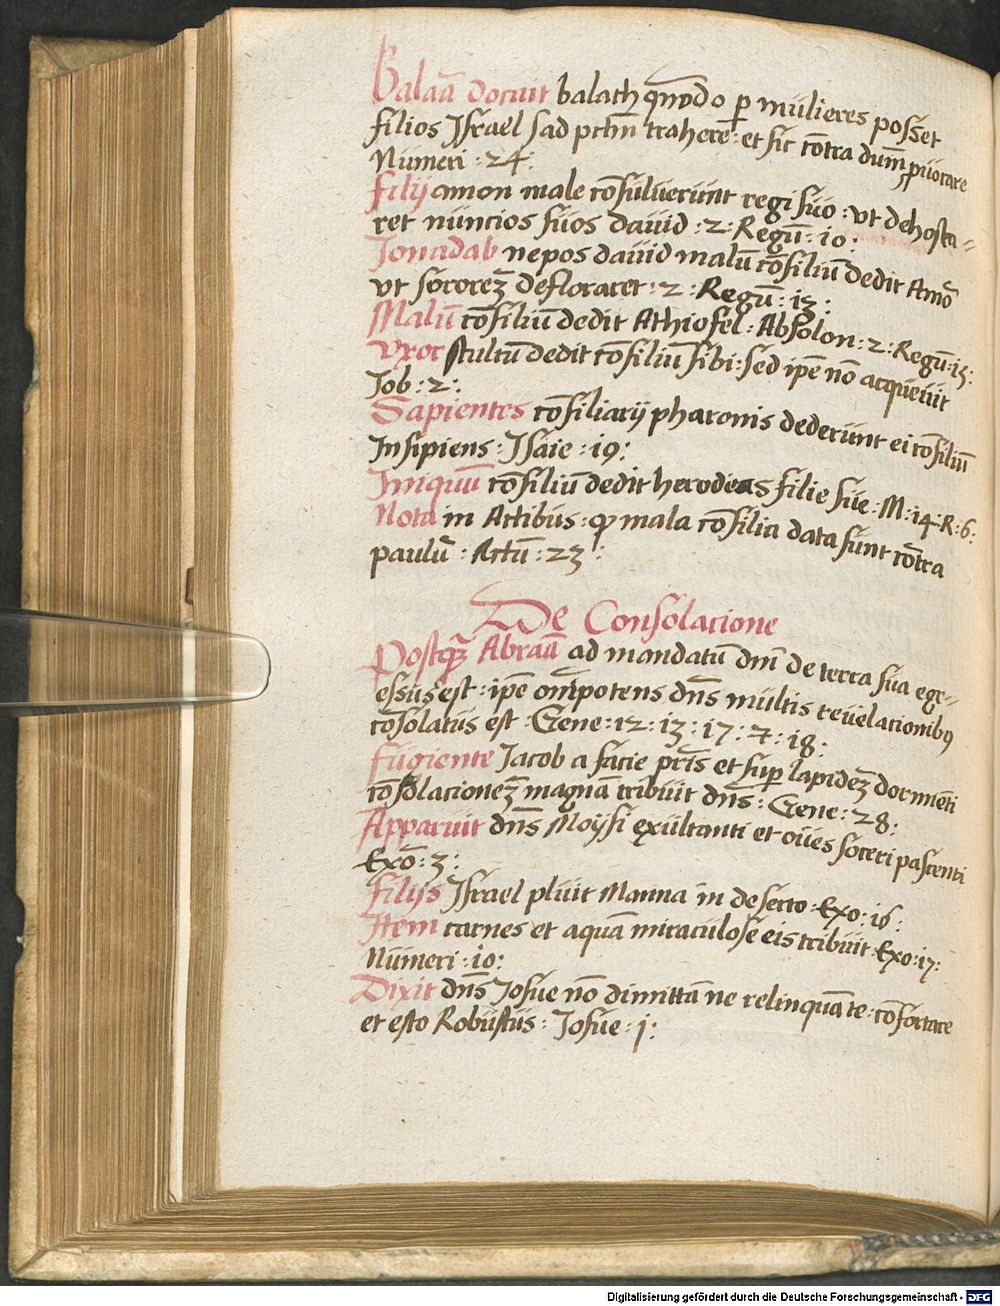 Balaā docuit balach qūmodo ꝑ mulieres posset
filios Israel ad pctm̄ trahere : et sic cōtra dum̄
Numeri : 24 :
filij amon male cōsuluerunt regi suo : vt dehosta=
ret nuncios suos dauid : 2 : Regū : 10 :
Jonadab nepos dauid malū cōsiliū dedit Amō
vt sororeꝫ defloraret : 2 : Regū : 13 :
Malū cōsiliū dedit Athiofel : Absolon : 2 : Regū : 15 :
Vxor stultū dedit cōsiliū sibi : sed ipē nō acqueuit
Job : 2 :
Sapientes cōsiliarij pharonis dederunt ei cōsiliū
Insipiens : Isaie : 19 :
Iniquū cōsiliū dedit herodeas filie sue : M : 14 : R : 6 :
Nota in Actibus : ꝙ mala cōsilia data sunt cōtra
paulū : Actū : 23 :
De Consolacione
Postqꝫ Abraā ad mandatū dm̄ de terra sua egr=
essus est : ipē om̄ipotens dn̄s multis reuelacionibꝯ
cōsolatus est : Gene : 12 : 13 : 17 : 7 : 18 :
fugiente Jacob a facie pr̄is et suꝑ lapideꝫ dormiēti
cōsolacioneꝫ magnā tribuit dn̄s : Gene : 28 :
Apparuit dn̄s Moysi exultanti et oues soceri pascenti
Exō : 3 :
filijs Israel pluit Manna in deserto : Exo : 16 :
Item carnes et aquā miraculose eis tribuit : Exo : 17 :
Numeri : 10 :
Dixit dn̄s Josue nō dimittā ne relinquā te : cōfortare
et esto Robustus : Josue : j :
Digitalisierung gefördert durch die Deutsche Forschungsgemeinschaft - DFG